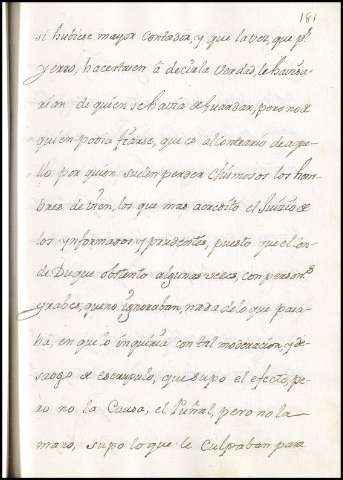 181
si hubiese mayor Contador, y que la vez, que p.r
yerro, hacertasen â decirla verdad, le havisa-
rían de quien, se havía de Guardar, pero no de
quien podia fiarse, que es al contrario de aque-
llo por quien suelen perder Chismosos los hom-
bres de vien, los que mas acredito el Juicio de
los ynformados y prudentes, puesto que el Con-
de Duque obtento algunas veces, con person.s
grabes, que no ygnoraban, nada de lo que pasa-
ba, en que lo inquiría con tal moderacion, y de-
saogo de escrupulo, que supo el efecto, pe-
ro no la Causa, el Puñal, pero no la
mano, supo lo que le Culpaban para